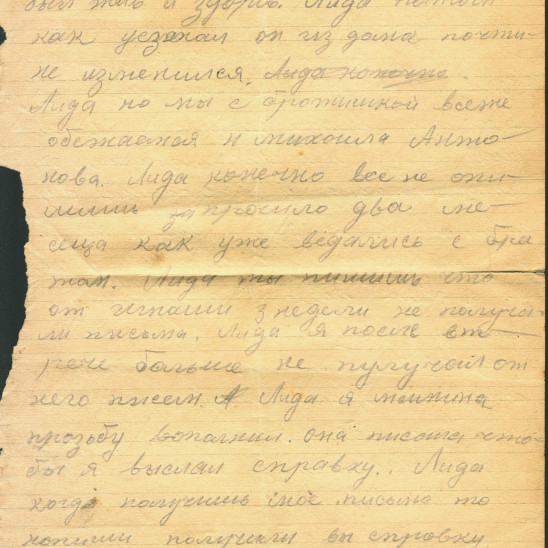 был жив и здоров. Лида
как уезжал он из дома почти
не изменился. Лида конечно
Лида но мы с братишкой всеже
обежаемся н михоила Анто-
нова. Лида конечно все не опи-
шишь прошло два ме-
сеца как уже ведались с бра
том. Лида ты пишишь что
от игнаши 3 недели не получа-
ли письма. Лида я после вст-
рече больше не пулучал от
него писем. А Лида я мамина
прозьбу вополнил. она писала что-
бы я выслал справку. Лида
когда получишь мое письмо то
напиши получили вы справку